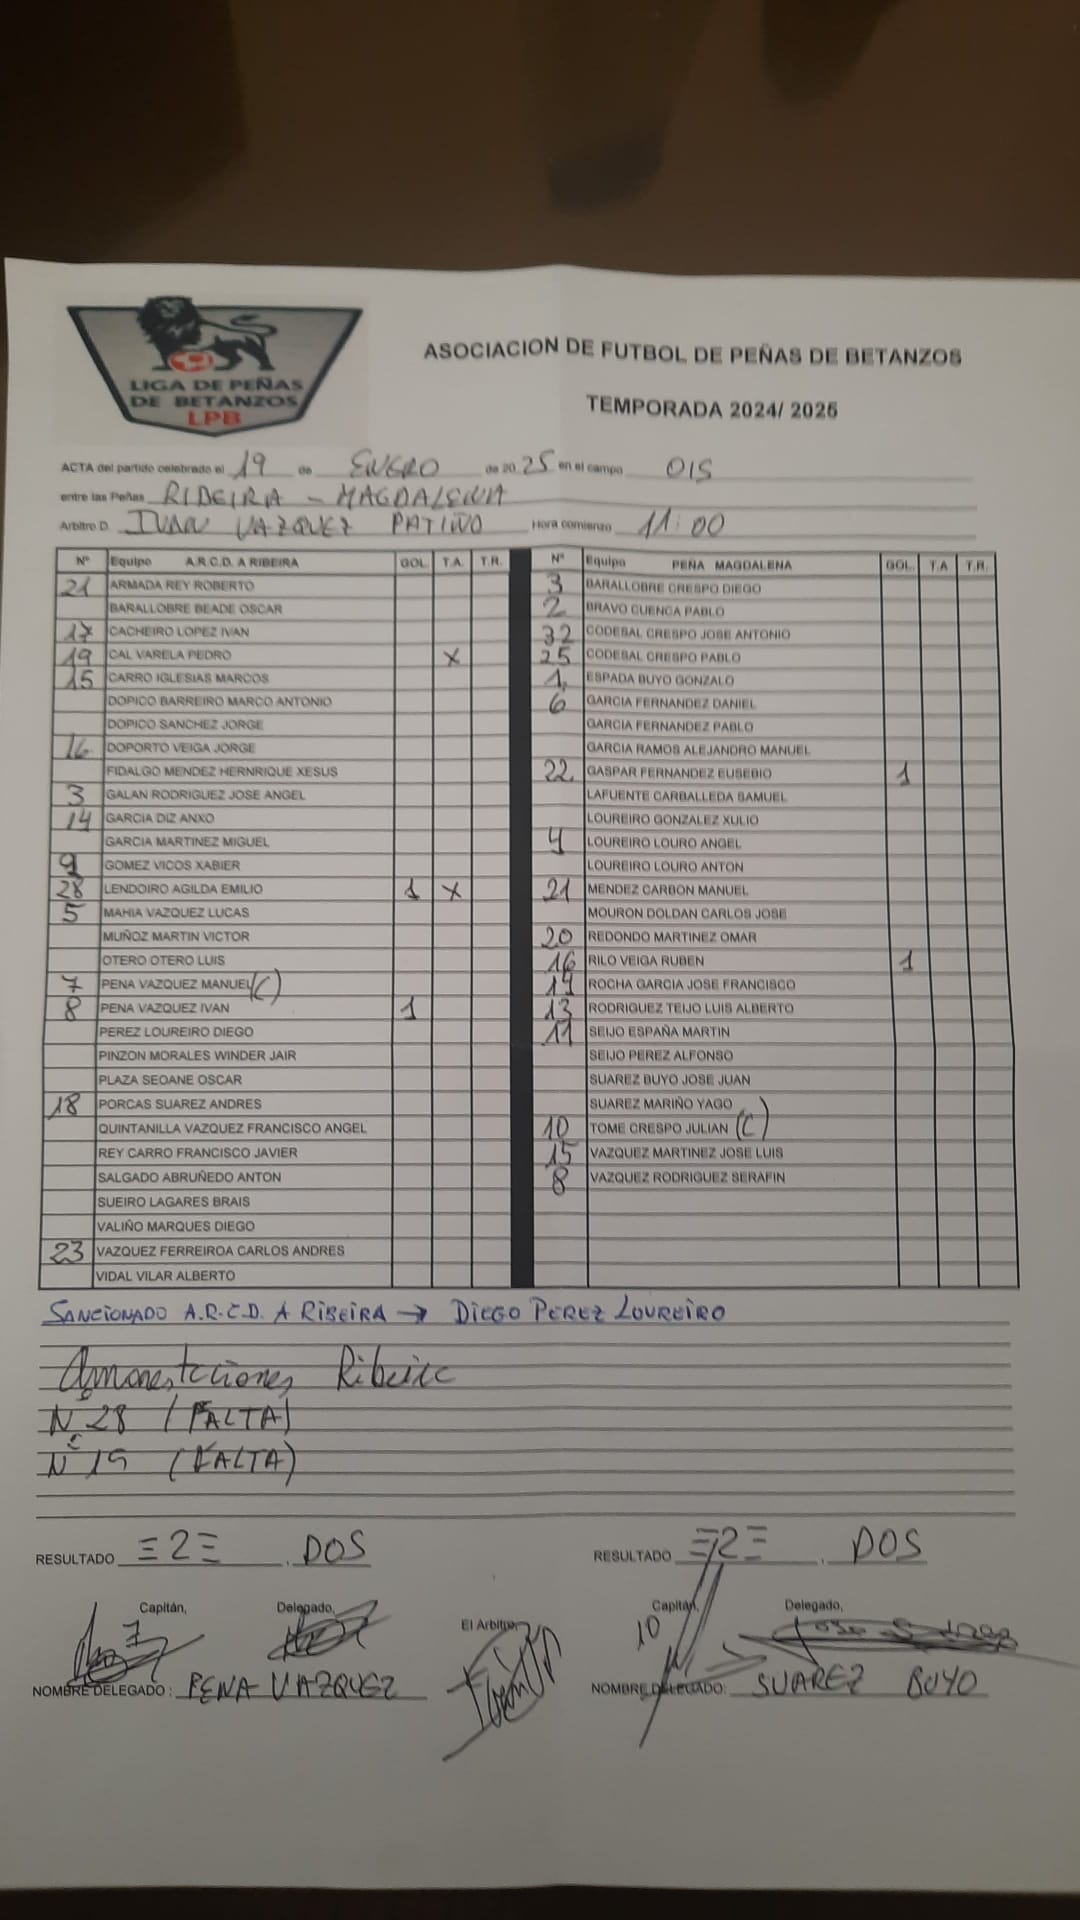 LIGA DE PEÑAS
DE BETANZOS
LPB
ASOCIACION DE FUTBOL DE PEÑAS DE BETANZOS
TEMPORADA 2024/ 2025
ACTA del partido celebrado el 19 de ENERO de 20 25 en el campo OIS
entre las Peñas RIBEIRA - MAGDALENA
Arbitro D. IVAN VAZQUEZ PATIÑO Hora comienzo 11:00
Nº Equipo A.R.C.D. A RIBEIRA GOL T.A. T.R. Nº Equipo PEÑA MAGDALENA GOL. T.A T.R.
21 ARMADA REY ROBERTO 3 BARALLOBRE CRESPO DIEGO
BARALLOBRE BEADE OSCAR 2 BRAVO CUENCA PABLO
17 CACHEIRO LOPEZ IVAN 32 CODESAL CRESPO JOSE ANTONIO
19 CAL VARELA PEDRO X 25 CODESAL CRESPO PABLO
15 CARRO IGLESIAS MARCOS 1. ESPADA BUYO GONZALO
DOPICO BARREIRO MARCO ANTONIO 6 GARCIA FERNANDEZ DANIEL
DOPICO SANCHEZ JORGE GARCIA FERNANDEZ PABLO
16 DOPORTO VEIGA JORGE GARCIA RAMOS ALEJANDRO MANUEL
FIDALGO MENDEZ HERNRIQUE XESUS 22. GASPAR FERNANDEZ EUSEBIO 1
3 GALAN RODRIGUEZ JOSE ANGEL LAFUENTE CARBALLEDA SAMUEL
14 GARCIA DIZ ANXO LOUREIRO GONZALEZ XULIO
GARCIA MARTINEZ MIGUEL 4 LOUREIRO LOURO ANGEL
9 GOMEZ VICOS XABIER LOUREIRO LOURO ANTON
28 LENDOIRO AGILDA EMILIO 1 X 21 MENDEZ CARBON MANUEL
5 MAHIA VAZQUEZ LUCAS MOURON DOLDAN CARLOS JOSE
MUÑOZ MARTIN VICTOR 20 REDONDO MARTINEZ OMAR
OTERO OTERO LUIS 16 RILO VEIGA RUBEN 1
7 PENA VAZQUEZ MANUEL (C) 19 ROCHA GARCIA JOSE FRANCISCO
8 PENA VAZQUEZ IVAN 1 13 RODRIGUEZ TEIJO LUIS ALBERTO
PEREZ LOUREIRO DIEGO 11 SEIJO ESPAÑA MARTIN
PINZON MORALES WINDER JAIR SEIJO PEREZ ALFONSO
PLAZA SEOANE OSCAR SUAREZ BUYO JOSE JUAN
18 PORCAS SUAREZ ANDRES SUAREZ MARIÑO YAGO
QUINTANILLA VAZQUEZ FRANCISCO ANGEL 10 TOME CRESPO JULIAN (C)
REY CARRO FRANCISCO JAVIER 15 VAZQUEZ MARTINEZ JOSE LUIS
SALGADO ABRUÑEDO ANTON 8 VAZQUEZ RODRIGUEZ SERAFIN
SUEIRO LAGARES BRAIS
VALIÑO MARQUES DIEGO
23 VAZQUEZ FERREIROA CARLOS ANDRES
VIDAL VILAR ALBERTO
SANCIONADO A.R.C.D. A RIBEIRA → DIEGO PEREZ LOUREIRO
Amonestaciones Ribeira
Nº 28 (FALTA)
Nº 19 (FALTA)
RESULTADO =2= . DOS RESULTADO =2= . DOS
Capitán, Delegado, El Arbitro, Capitán, Delegado,
7 10
NOMBRE DELEGADO: PENA VAZQUEZ NOMBRE DELEGADO: SUAREZ BUYO